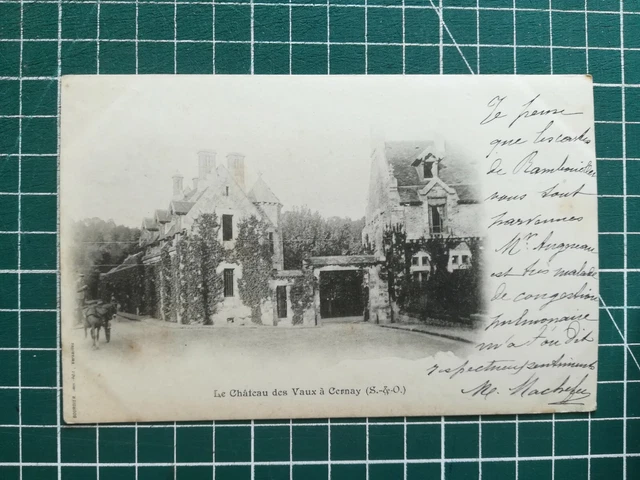 Je pense
que les cartes
de Rambouillet
vous sont
parvenues
Mr
est très malade
de congestion
pulmonaire
m'a t'on dit
respectueux sentiments
M.
Le Château des Vaux à Cernay (S.-&-O.)